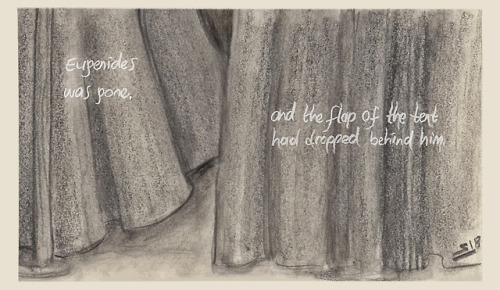 Eugenides
was gone,
and the flap of the tent
had dropped behind him.